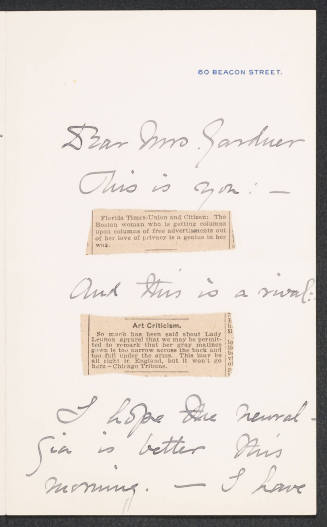 60 BEACON STREET.
Dear Mrs. Gardner
This is you: —
Florida Times-Union and Citizen: The
Boston woman who is getting columns
upon columns of free advertisments out
of her love of privacy is a genius in her
way.
And this is a rival:
Art Criticism.
So much has been said about Lady
apparel that we may be permit-
ted to remark that her gray matinee
gown is too narrow across the back and
too full under the arms. This may be
all right in England, but it won't go
here.—Chicago Tribune.
I hope the neural-
gia is better this
morning. — I have